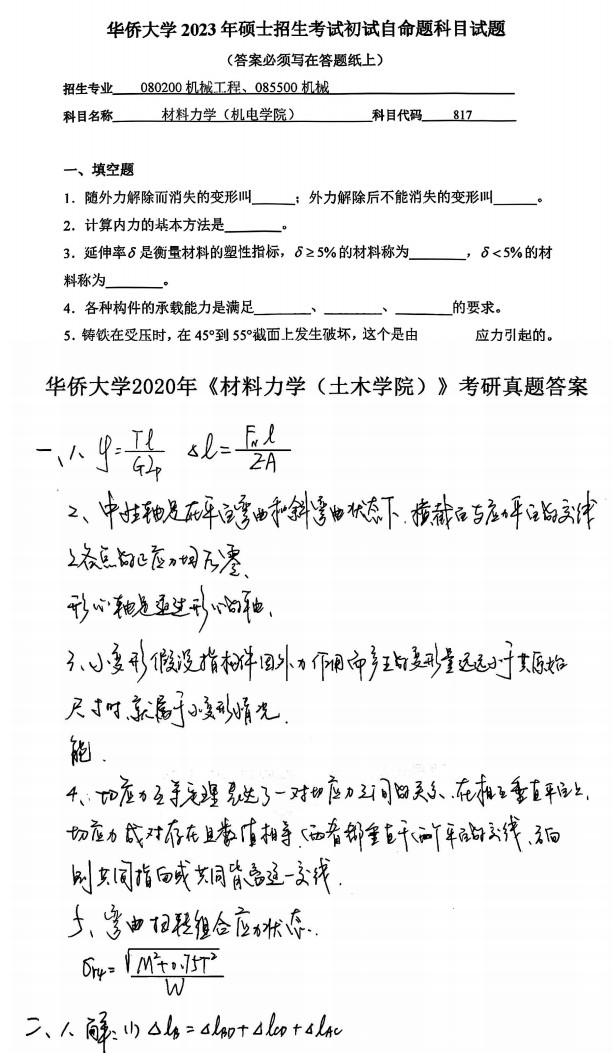 华侨大学 2023 年硕士招生考试初试自命题科目试题
（答案必须写在答题纸上）
招生专业 080200 机械工程、085500 机械
科目名称 材料力学（机电学院） 科目代码 817
一、填空题
1．随外力解除而消失的变形叫______；外力解除后不能消失的变形叫______。
2．计算内力的基本方法是________。
3．延伸率δ是衡量材料的塑性指标，δ≥5%的材料称为________，δ<5%的材
料称为________。
4．各种构件的承载能力是满足________、________、________的要求。
5．铸铁在受压时，在 45°到 55°截面上发生破坏，这个是由 应力引起的。
华侨大学2020年《材料力学（土木学院）》考研真题答案
一、1、φ=Tl/GIp Δl=F_N l/EA
2、中性轴是在平面弯曲和斜弯曲状态下，横截面与应力平面的交线
上各点的正应力均为零、
形心轴是通过形心的轴、
3、小变形假设指构件因外力作用而产生的变形量远远小于其原始
尺寸时，就属于小变形情况．
能．
4、切应力互等定理表达了一对切应力之间的关系、在相互垂直平面上，
切应力成对存在且数值相等、两者都垂直于两个平面的交线、方向
则共同指向或共同背离这一交线．
5、弯曲扭转组合应力状态．
σr4=√(M²+0.75T²)/W
二、1、解：(1) Δl_B=Δl_BD+Δl_CD+Δl_AC